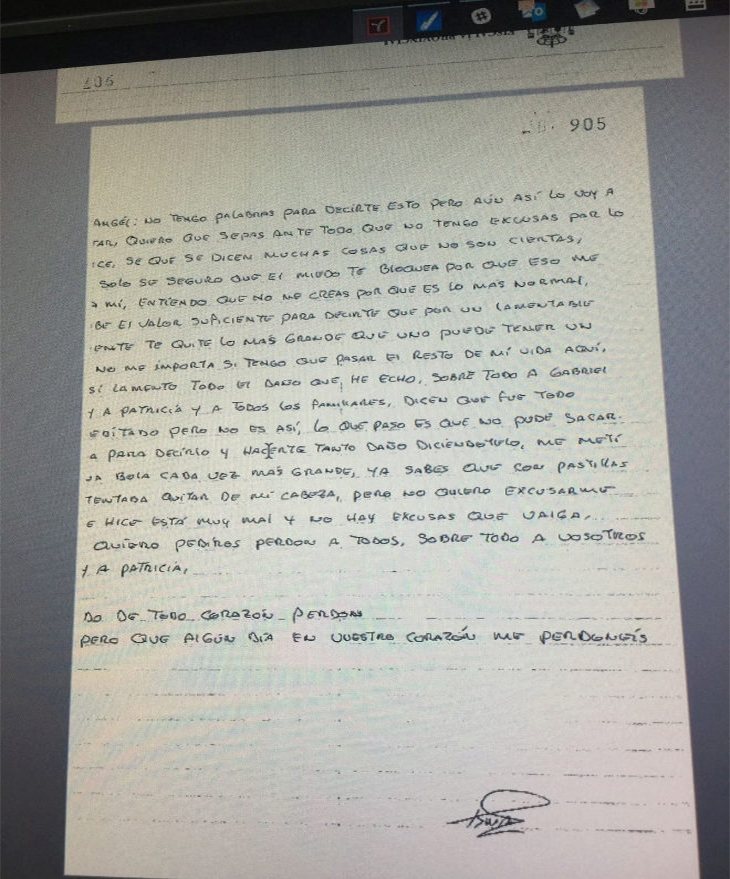 405
905
ANGÉL: NO TENGO PALABRAS PARA DECIRTE ESTO PERO AÚN ASÍ LO VOY A
TAR, QUIERO QUE SEPAS ANTE TODO QUE NO TENGO EXCUSAS POR LO
ICE, SE QUE SE DICEN MUCHAS COSAS QUE NO SON CIERTAS,
SOLO SE SEGURO QUE El MIEDO TE BLOQUEA POR QUE ESO ME
A MÍ, ENTIENDO QUE NO ME CREAS POR QUE ES LO MAS NORMAl,
BE El VALOR SUFICIENTE PARA DECIRTE QUE POR UN LAMENTABlE
ENTE TE QUITE LO MAS GRANDE QUE UNO PUEDE TENER UN
NO ME IMPORTA SI TENGO QUE PASAR El RESTO DE MÍ VIDA AQUÍ,
SÍ LAMENTO TODO El DAÑO QUE HE ECHO, SOBRE TODO A GABRIEl
Y A PATRICIA Y A TODOS LOS FAMILIARES, DICEN QUE FUE TODO
EDITADO PERO NO ES ASÍ, LO QUE PASO ES QUE NO PUDE SACAR
A PARA DECIRlO Y HACERTE TANTO DAÑO DICIÉNDOTElO, ME METÍ
NA BOlA CADA VEZ MAS GRANDE, YA SABES QUE CON PASTIllAS
TENTABA QUITAR DE MI CABEZA, PERO NO QUIERO EXCUSARME
E HICE ESTÁ MUY MAl Y NO HAY EXCUSAS QUE VAlGA,
QUIERO PEDIROS PERDON A TODOS, SOBRE TODO A VOSOTROS
Y A PATRICIA,
DO DE TODO CORAZÓN PERDON
PERO QUE AlGÚN DÍA EN VUESTRO CORAZÓN ME PERDONEÍS